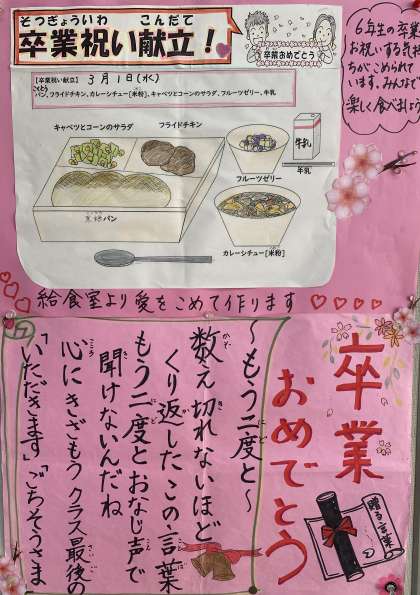 そつぎょういわ こんだて
卒業祝い献立！
卒業おめでとう
6年生の卒業を
お祝いする気持
ちがこめられて
います。みんなで
楽しく食べましょう
【卒業祝い献立】 3月1日(水)
こくとう
パン、フライドチキン、カレーシチュー[米粉]、キャベツとコーンのサラダ、フルーツゼリー、牛乳
キャベツとコーンのサラダ
フライドチキン
牛乳
牛乳
フルーツゼリー
黒糖パン
カレーシチュー[米粉]
給食室より愛をこめて作ります
卒業
おめでとう
贈る言葉
〜もう二度と〜
数え切れないほど
くり返したこの言葉
もう二度とおなじ声で
聞けないんだね
心にきざもうクラス最後の
「いただきます」「ごちそうさま